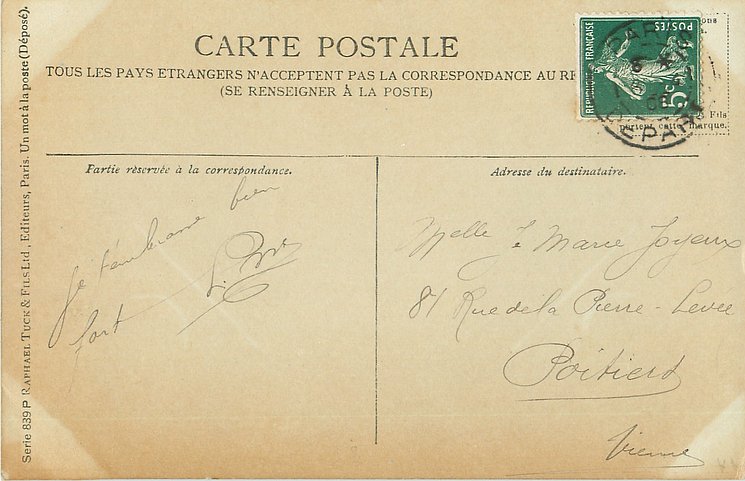 CARTE POSTALE
TOUS LES PAYS ETRANGERS N'ACCEPTENT PAS LA CORRESPONDANCE AU
(SE RENSEIGNER À LA POSTE)
REPUBLIQUE FRANÇAISE
POSTES
5c
PARIS
DEPART
Fils
portent cette marque.
Partie réservée à la correspondance.
Je t'embrasse bien
fort
Adresse du destinataire.
Melle Marie Joyeux
81 Rue de la Pierre-Levée
Poitiers
Vienne
Serie 839 P RAPHAEL TUCK & FILS Ltd, Editeurs, Paris. Un mot à la poste (Déposé).